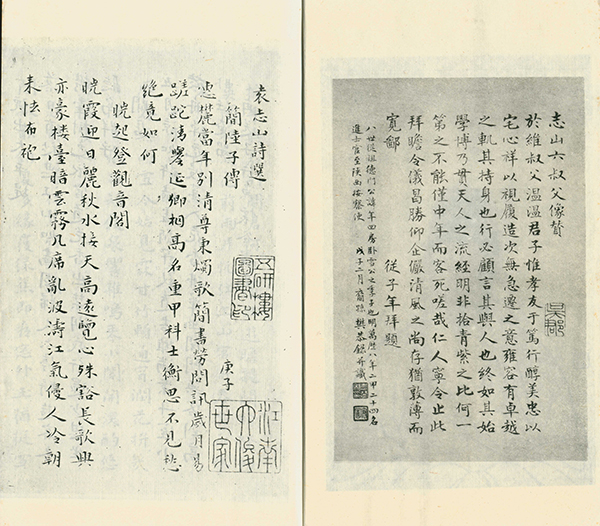 志山六叔父像贊
於維叔父溫溫君子惟孝友于篤行醇美忠以
宅心祥以視履造次無急遽之意雍容有卓越
之軌其持身也行必顧言其與人也終如其始
學博乃貫天人之流經明非拾青紫之比何一
第之不能僅中年而客死嗟哉仁人寧令止此
拜瞻令儀曷勝仰企儼清風之尚存猶敦薄而
寬鄙
從子年拜題
八世從祖德門公諱年四房卧雪公之季子也明萬曆八年二甲二十四名
進士官至陝西按察使
戊子二月裔孫 恭錄并識
吳郡
袁志山詩選
簡陸子傳
當年別清尊秉燭歌簡書勞問訊歲月易
蹉跎清譽延卿相高名重甲科士衡思不見愁
絕竟如何
曉起登觀音閣
曉霞迎日麗秋水接天高遠覽心殊豁長歌興
亦豪樓臺暗雲霧几席亂波濤江氣侵人冷朝
來怯布袍
五研樓
圖書印
庚子
江南
世家